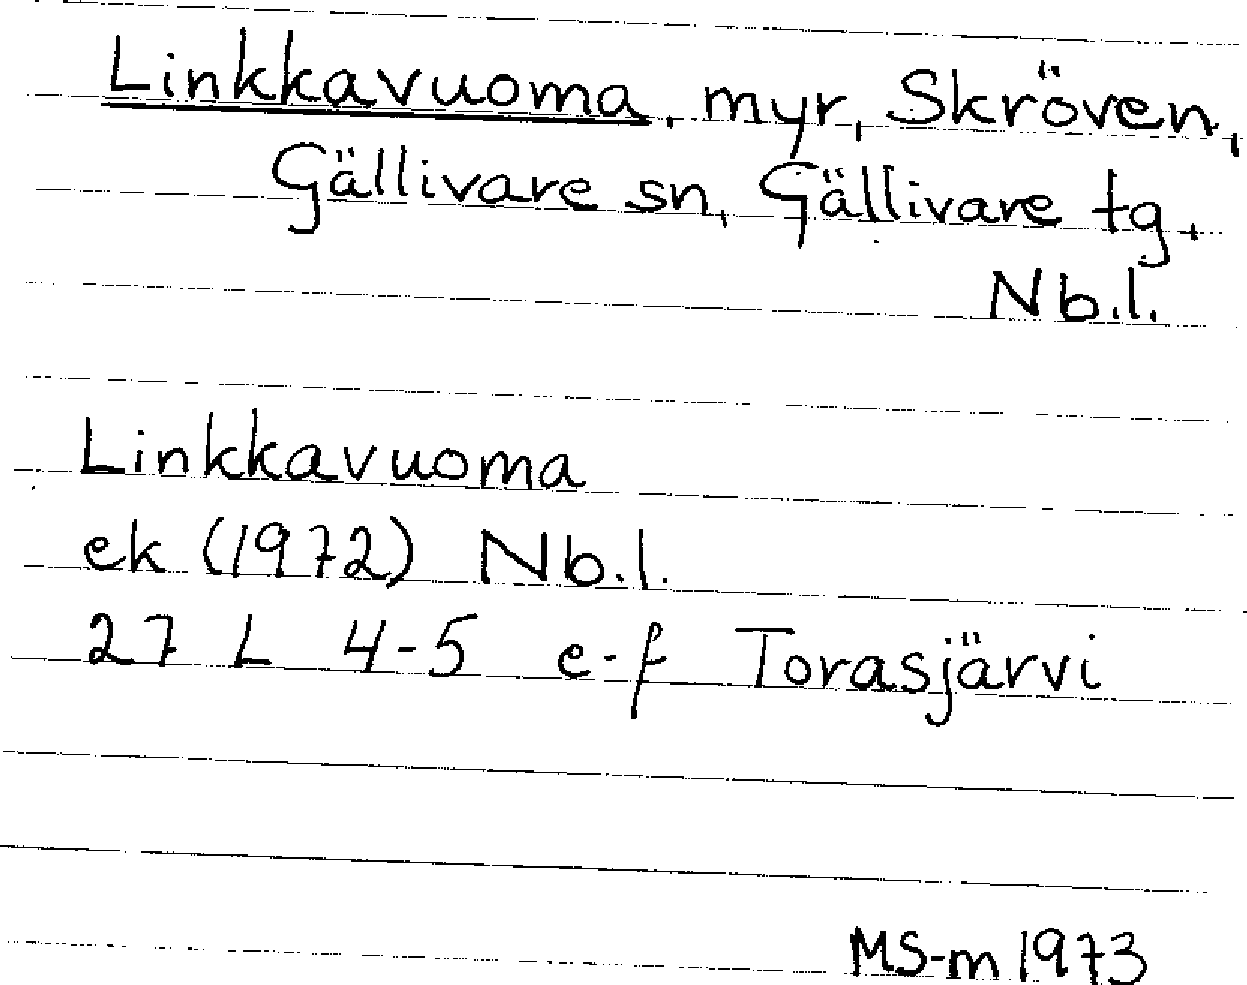 Linkkavuoma, myr, Skröven,
Gällivare sn, Gällivare tg,
Nb.l.
Linkkavuoma
ek (1972) Nb.l.
27 L 4-5 e-f Torasjärvi
MS-m 1973